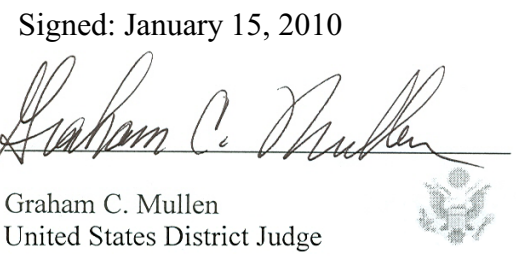 Signed: January 15, 2010
Graham C. Mullen
Graham C. Mullen
United States District Judge